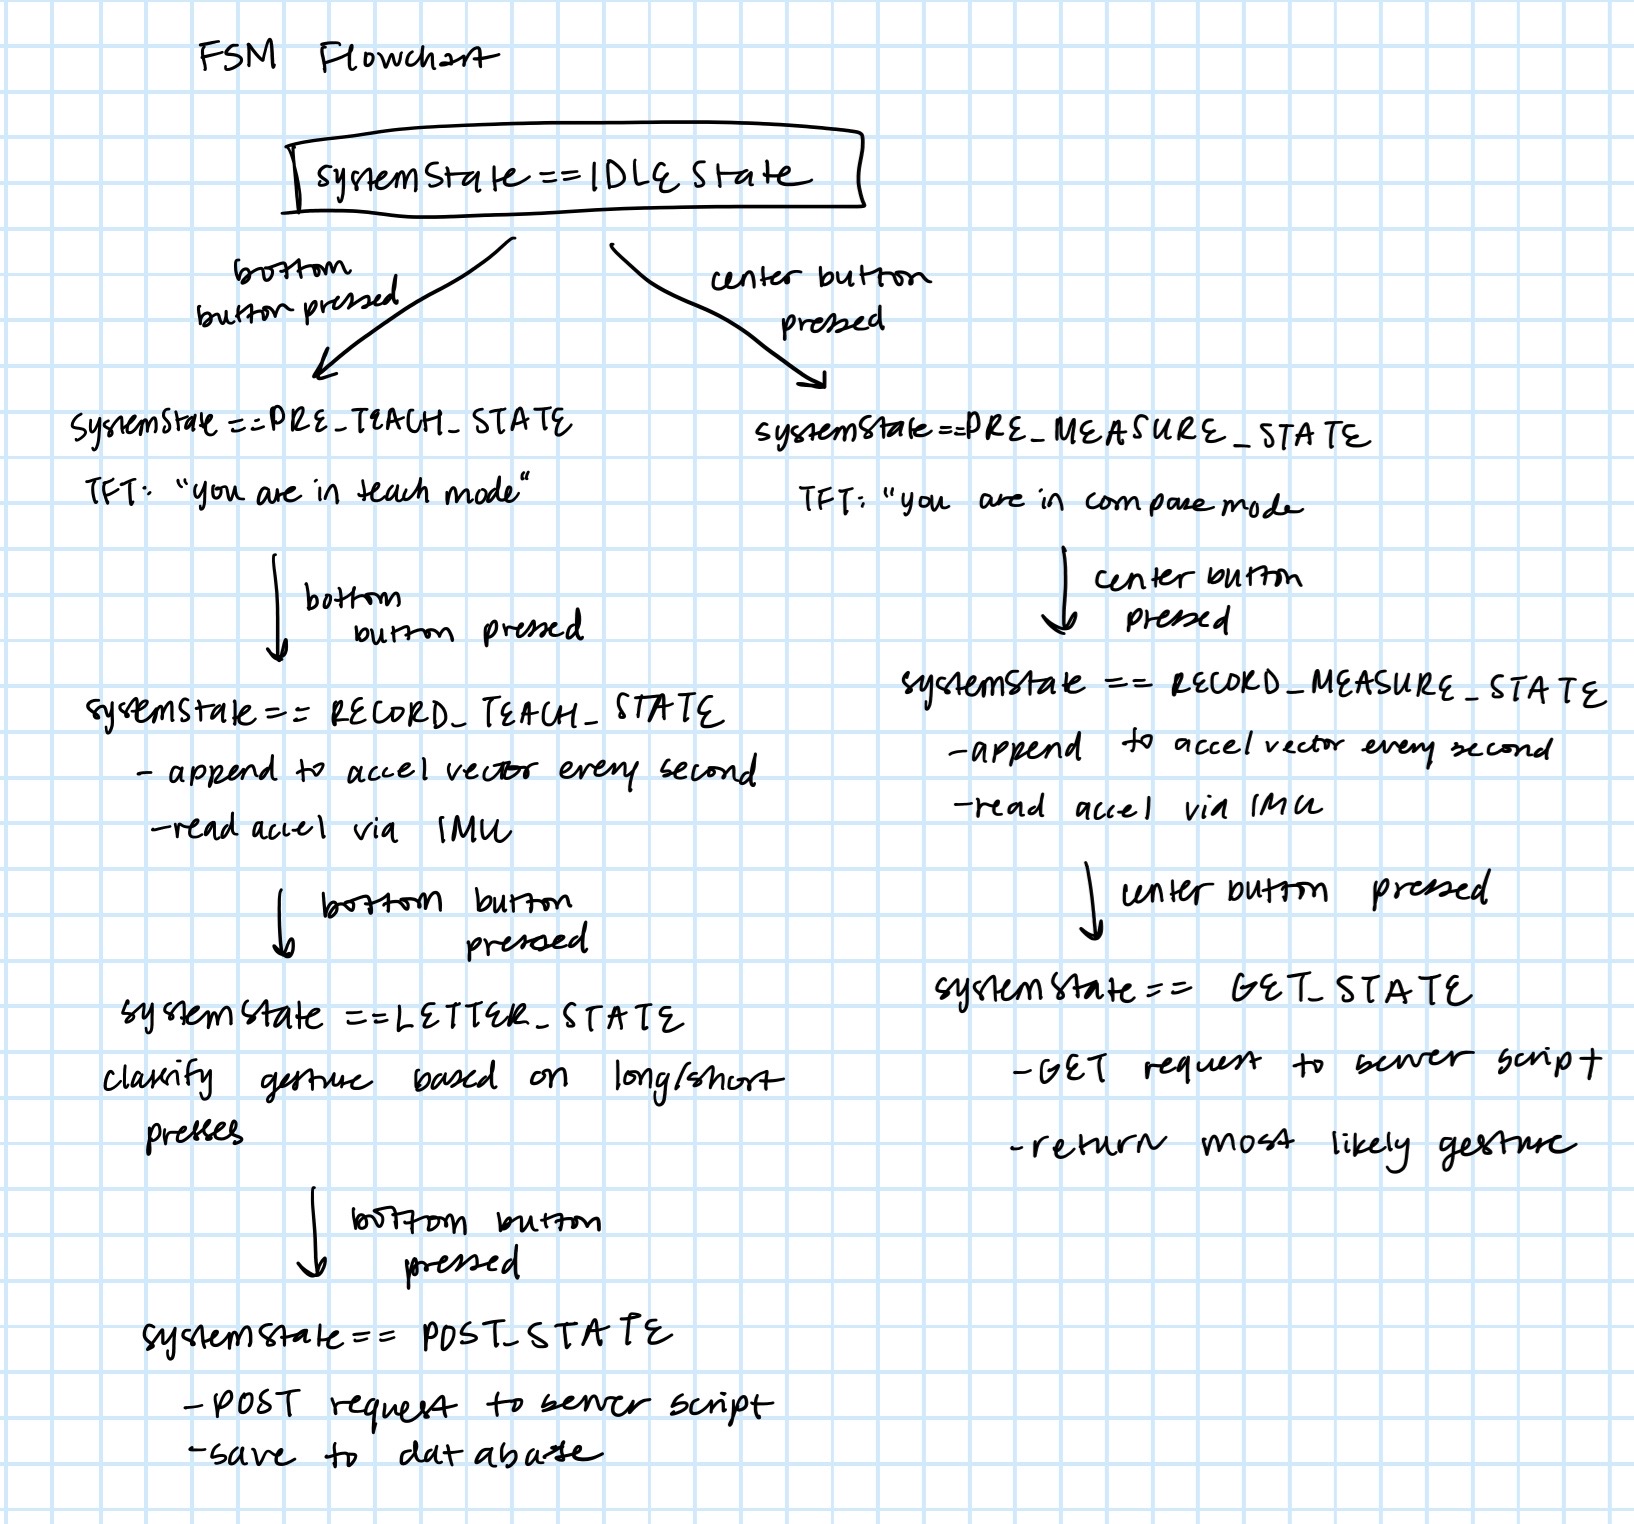 FSM Flowchart
systemState == IDLE State
bottom
button pressed
center button
pressed
systemState == PRE_TEACH_STATE
TFT: "you are in teach mode"
bottom
button pressed
systemState == RECORD_TEACH_STATE
- append to accel vector every second
- read accel via IMU
bottom button
pressed
systemState == LETTER_STATE
classify gesture based on long/short
presses
bottom button
pressed
systemState == POST_STATE
- POST request to server script
- save to database
systemState == PRE_MEASURE_STATE
TFT: "you are in compare mode
center button
pressed
systemState == RECORD_MEASURE_STATE
- append to accel vector every second
- read accel via IMU
center button pressed
systemState == GET_STATE
- GET request to server script
- return most likely gesture